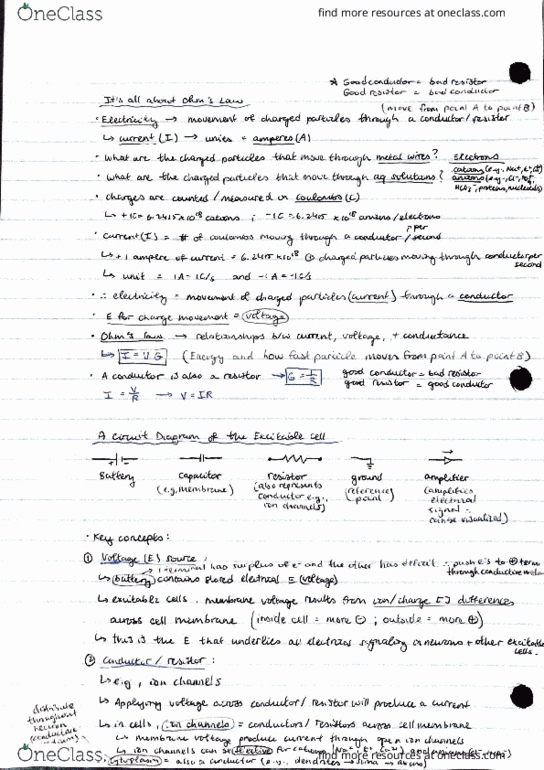 OneClass
find more resources at oneclass.com
☆ Good conductor = bad resistor
Good resistor = bad conductor
It's all about Ohm's Law
(move from point A to point B)
· Electricity → movement of charged particles through a conductor/resistor
↳ current (I) → units = amperes (A)
· What are the charged particles that move through metal wires? electrons
· What are the charged particles that move through aq solutions? cations (e.g., Na⁺, K⁺,
anions (e.g., Cl⁻,
proteins, nucleotides)
· charges are counted / measured in coulombs (C)
↳ +1C = 6.2415 x10¹⁸ cations ; -1C = 6.2415 x10¹⁸ anions/electrons
per
· Current (I) = # of coulombs moving through a conductor /second
↳ +1 ampere of current = 6.2415 x10¹⁸ ⊕ charged particles moving through conductor per
second
↳ unit = 1A = 1C/s and -1A = -1C/s
· ∴ electricity = movement of charged particles (current) through a conductor
· E for charge movement = voltage
· Ohm's law → relationships b/w current, voltage, + conductance
↳ I = VG (Energy and how fast particle moves from point A to point B)
· A conductor is also a resistor → G = 1/R good conductor = bad resistor
good resistor = good conductor
I = V/R → V = IR
A Circuit Diagram of the Excitable cell
Battery capacitor resistor ground amplifier
(e.g. membrane) (also represents (reference (amplifies
conductor e.g., point) electrical
ion channels) signal ∴
can be visualized)
· Key concepts:
① Voltage (E) source :
→ 1 terminal has surplus of e⁻ and the other has deficit ∴ push e⁻s to ⊕ term
through conductive
↳ battery contains stored electrical E (voltage)
↳ excitable cells. membrane voltage results from ion/charge [] differences
across cell membrane (inside cell = more ⊖ ; outside = more ⊕)
↳ this is the E that underlies all electrical signaling in neurons + other excitable
cells.
② Conductor / resistor :
↳ e.g., ion channels
↳ Applying voltage across conductor/resistor will produce a current
↳ in cells, ion channels = conductors/resistors across cell membrane
↳ membrane voltage produce current through open ion channels
↳ ion channels can be selective for cations
↳ cytoplasm = also a conductor (e.g., dendrites → soma →
distribute
throughout
neuron
(conductive
OneClass
find more resources at oneclass.com